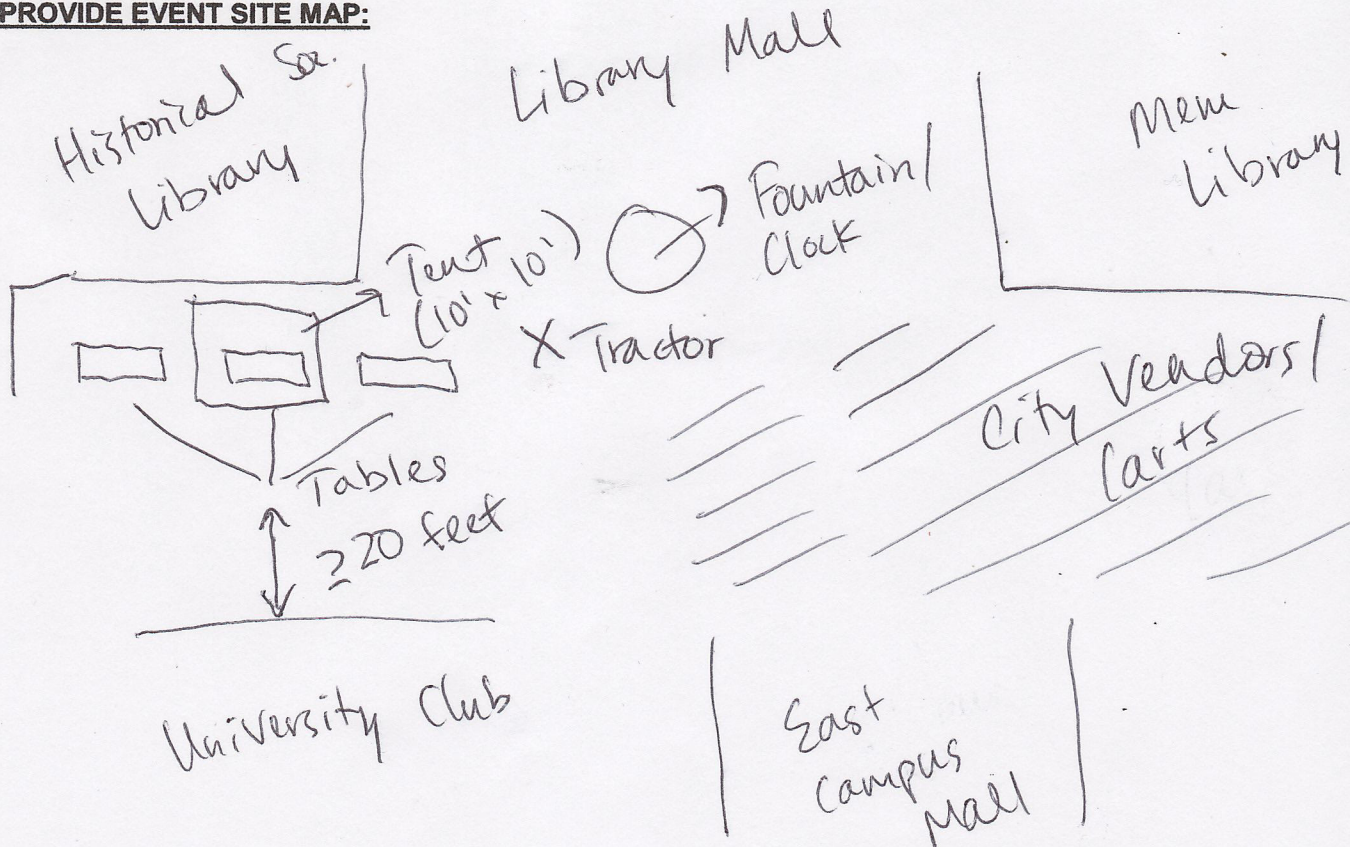 PROVIDE EVENT SITE MAP:
Historical Soc.
Library
Library Mall
Mem
Library
Fountain/
Clock
Tent
(10' x 10')
X Tractor
City Vendors/
Carts
Tables
≥20 feet
University Club
East
Campus
Mall